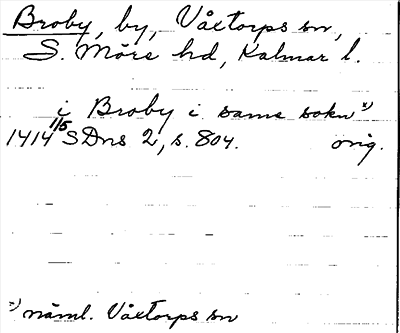 Broby, by, Växtorps sn,
S. Möre hd, Kalmar l.
i Broby i sama sokn *)
1414 1/5 SDns 2, s. 804. orig.
*) näml. Växtorps sn